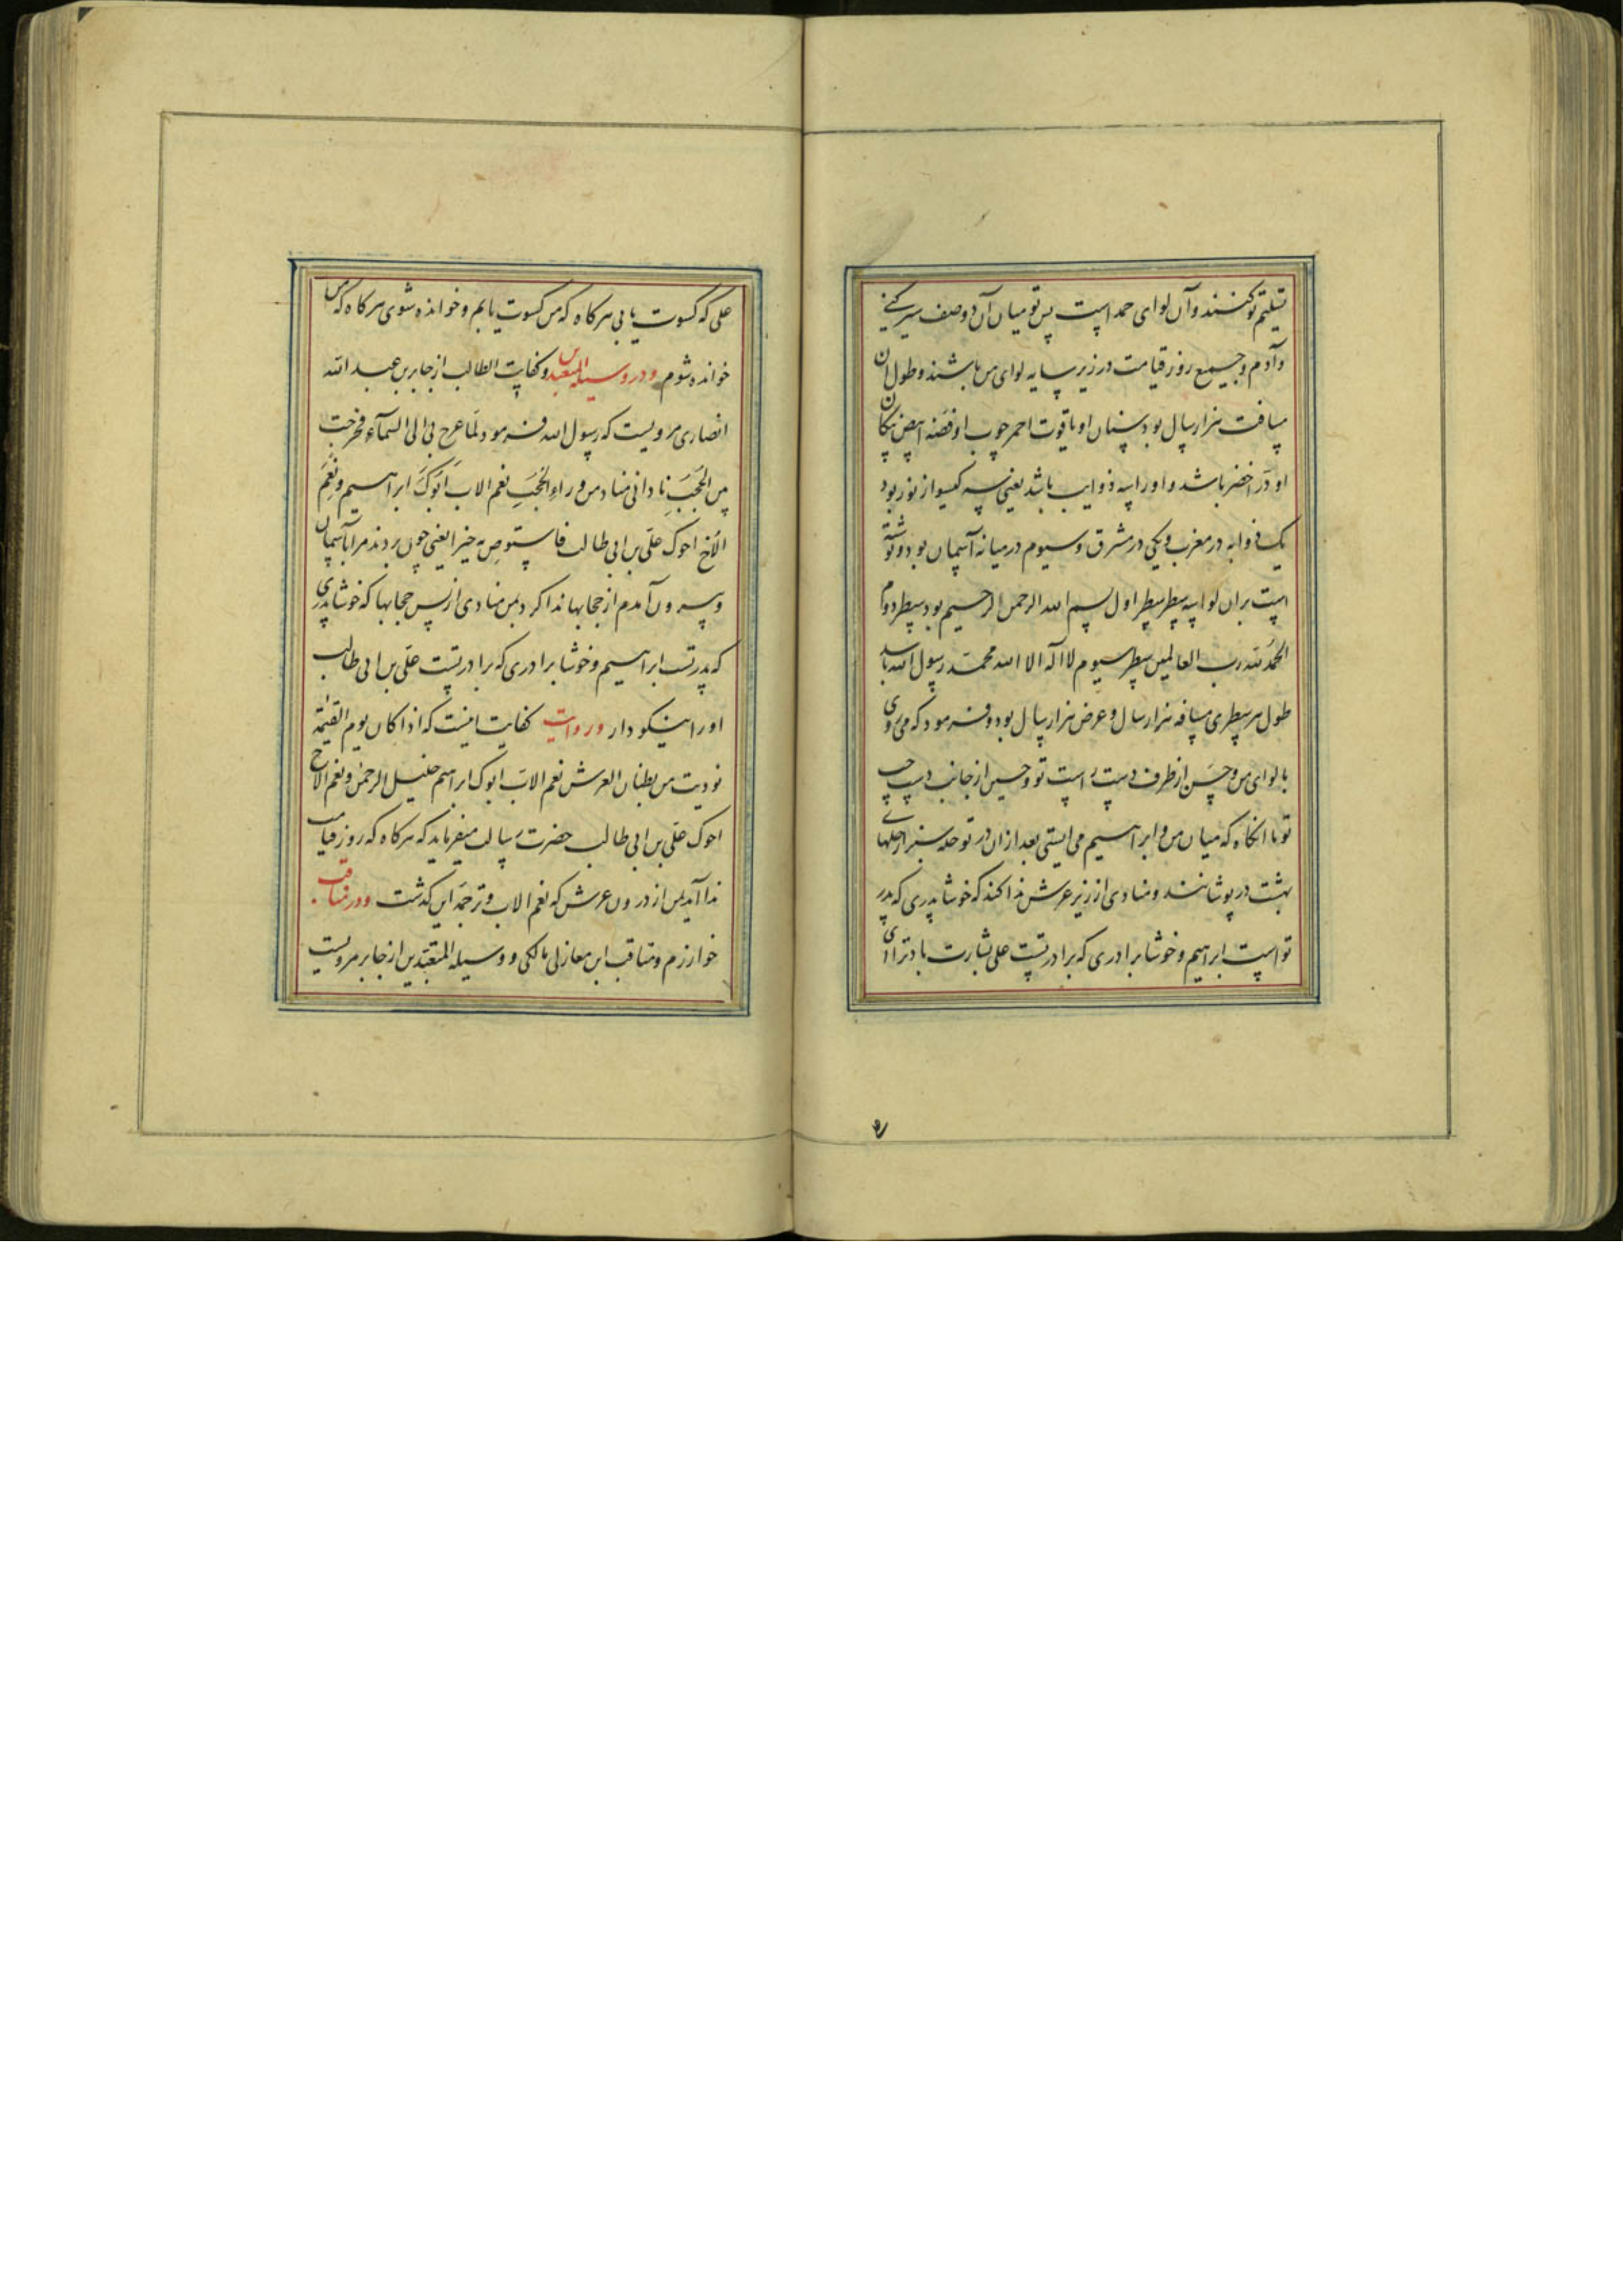 تسلیم تو کنند و آن لوای حمد است پس تو میان آن دو صف سیر کنی
و آدم و جمیع روز قیامت در زیر سایه لوای من باشند و طول آن
مسافت هزار سال بود سنان او یاقوت احمر چوب او فضه ابیض پیکان
او در اخضر باشد و او را سه ذوایب باشد یعنی سه کیسو از نور بود
یک ذوابه در مغرب و یکی در مشرق و سیوم در میانه آسمان بود و نوشته
است بران لوا سه سطر سطر اول بسم الله الرحمن الرحیم بود سطر دوم
الحمد لله رب العالمین سطر سیوم لا اله الا الله محمد رسول الله باشد
طول هر سطری مسافه هزار سال و عرض هزار سال بود و فرمود که می روی
با لوای من و حسن از طرف دست راست تو و حسین از جانب دست چپ
تو تا انکاه که میان من و ابراهیم می ایستی بعد از ان در تو حله سبز از حلهای
بهشت در پوشانند و منادی از زیر عرش ندا کند که خوشا پدری که پدر
تو است ابراهیم و خوشا برادری که برادر تست علی بشارت باد ترا ای
علی که کسوت یابی هرکاه که من کسوت یابم و خوانده شوی هرکاه که من
خوانده شوم و در وسیله المتعبدین و کفایت الطالب از جابر بن عبد الله
انصاری مرویست که رسول الله فرمود لما عرج بی الی السمآء فخرجت
من الحجب نادانی مناد من وراء الحجب نعم الاب ابوک ابراهیم و نعم
الاخ اخوک علی بن ابی طالب فاستوص به خیرا یعنی چون بردند مرا بآسمان
و بیرون آمدم از حجابها ندا کرد بمن منادی از پس حجابها که خوشا پدری
که پدر تست ابراهیم و خوشا برادری که برادر تست علی بن ابی طالب
او را نیکو دار و روایت کفایت اینست که اذا کان یوم القیمه
نودیت من بطنان العرش نعم الاب ابوک ابراهیم خلیل الرحمن و نعم الاخ
اخوک علی بن ابی طالب حضرت رسالت میفرماید که هرکاه که روز قیامت
ندا آید بمن از درون عرش که نعم الاب و ترجمه این کذشت و در مناقب
خوارزم و مناقب ابن مغازلی مالکی و وسیله المتعبدین از جابر مرویست